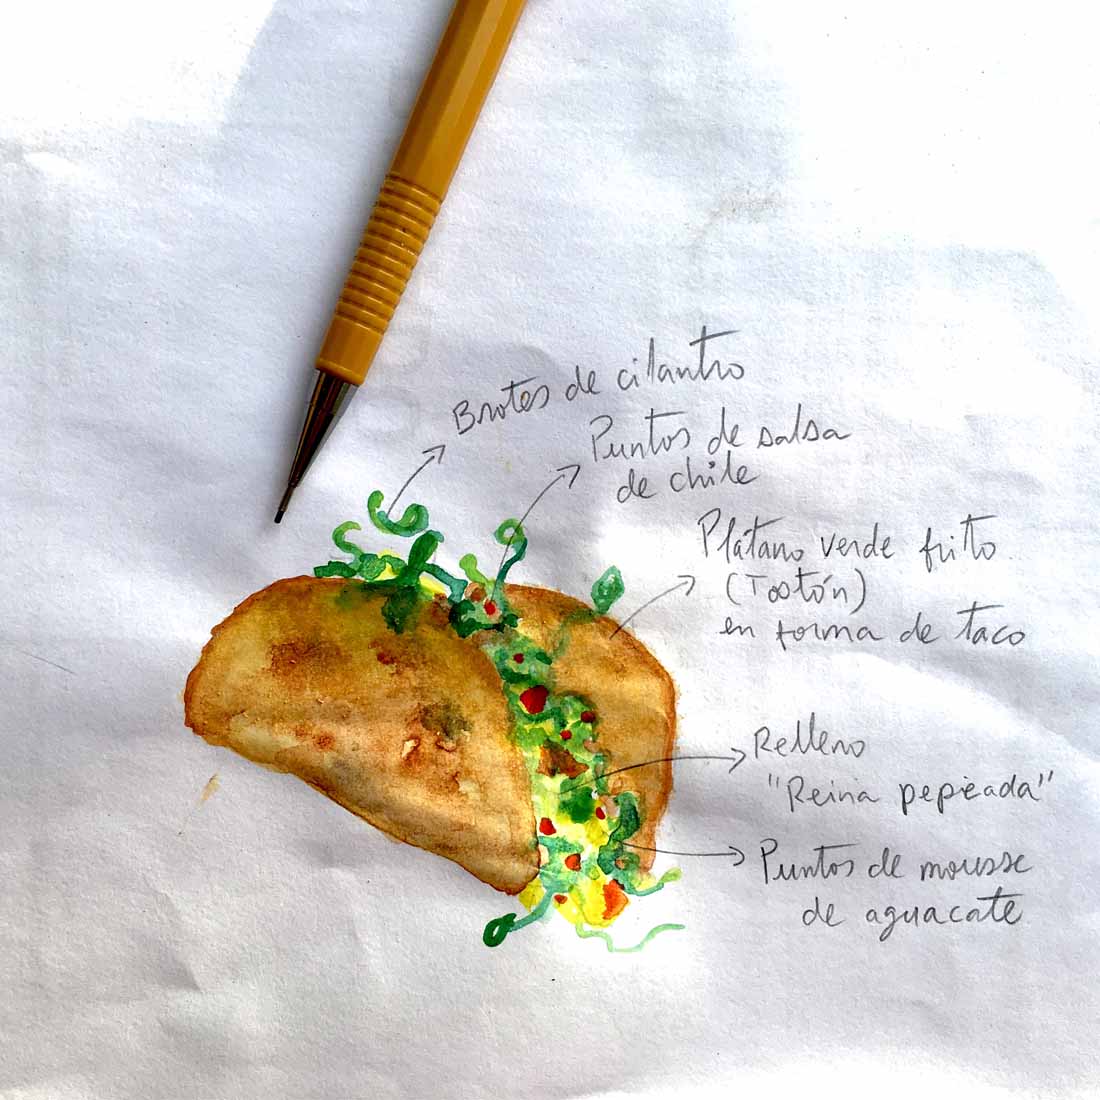 Brotes de cilantro
Puntos de salsa
de chile
Plátano verde frito
(Tostón)
en forma de taco
Relleno
"Reina pepeada"
Puntos de mousse
de aguacate